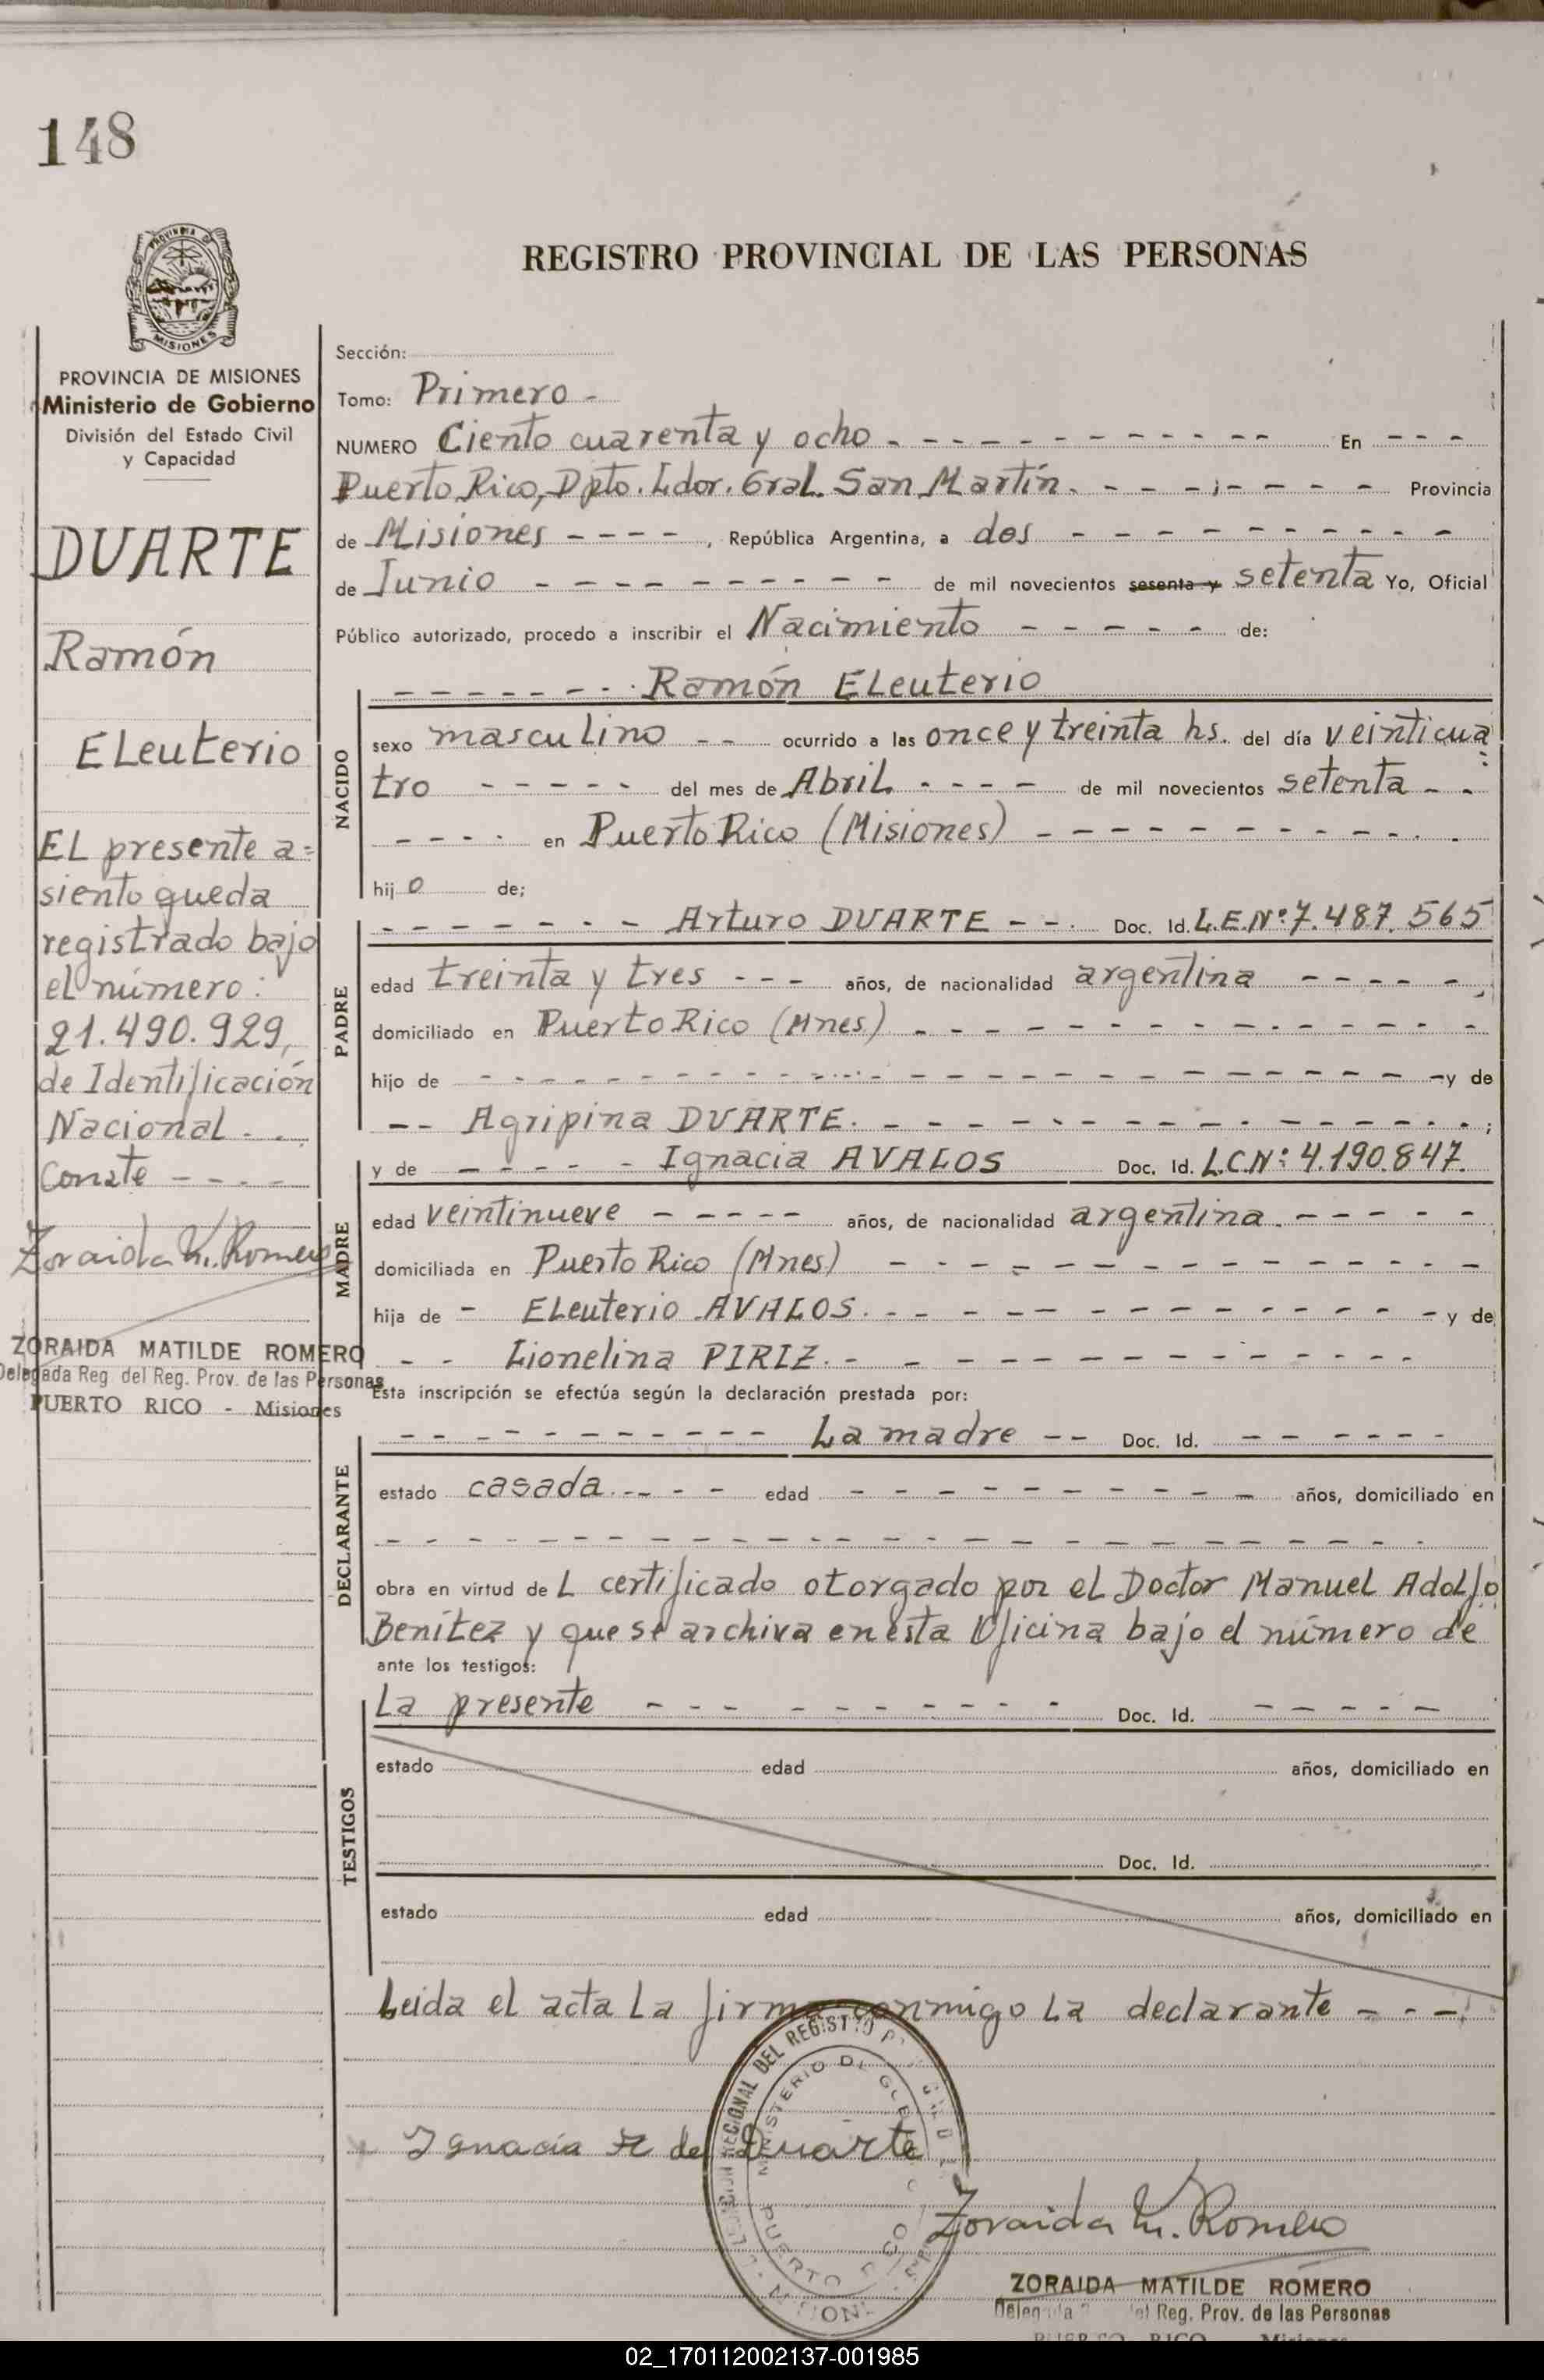 148
PROVINCIA DE MISIONES
Ministerio de Gobierno
División del Estado Civil
y Capacidad
DUARTE
Ramón
ELeuterio
EL presente a=
siento queda
registrado bajo
el número:
21.490.929,
de Identificación
Nacional - . .
Conste - - - -
Zoraida M. Romero
ZORAIDA MATILDE ROMERO
Delegada Reg. del Reg. Prov. de las Personas
PUERTO RICO - Misiones
REGISTRO PROVINCIAL DE LAS PERSONAS
Sección:
Tomo: Primero -
NUMERO Ciento cuarenta y ocho - - - - - - - - - - - - En - - -
Puerto Rico, Dpto. Ldor. Gral. San Martín. - - - - ; - - - - Provincia
de Misiones - - - - , República Argentina, a dos - - - - - - - - - -
de Junio - - - - - - - - - - de mil novecientos sesenta y setenta Yo, Oficial
Público autorizado, procedo a inscribir el Nacimiento - - - - - de:
- - - - - - - Ramón ELeuterio
NACIDO
sexo masculino - - ocurrido a las once y treinta hs. del día veinticua=
tro - - - - - del mes de Abril - - - - de mil novecientos setenta - -
- - - - en Puerto Rico (Misiones) - - - - - - - - - - -
hijo de;
PADRE
- - - - - - - Arturo DUARTE - - . Doc. Id. L.E.Nº 7.487.565
edad treinta y tres - - - años, de nacionalidad argentina - - - - - ,
domiciliado en Puerto Rico (Mnes) - - - - - - - - - - - - - -
hijo de - - - - - - - - - - - - - - - - - - - - - - - y de
- - Agripina DUARTE. - - - - - - - - - - - - - - - ;
MADRE
y de - - - - - Ignacia AVALOS Doc. Id. L.C.Nº: 4.190.847.
edad veintinueve - - - - - años, de nacionalidad argentina. - - - - -
domiciliada en Puerto Rico (Mnes) - - - - - - - - - - - - - -
hija de - ELeuterio AVALOS. - - - - - - - - - - - - - y de
- - Lionelina PIRIZ. - - - - - - - - - - - - -
Esta inscripción se efectúa según la declaración prestada por:
DECLARANTE
- - - - - - - - - - La madre - - Doc. Id. - - - - - -
estado casada. - - - - edad - - - - - - - - - - años, domiciliado en
- - - - - - - - - - - - - - - - - - - - - - - -
obra en virtud de L certificado otorgado por el Doctor Manuel Adolfo
Benítez y que se archiva en esta Oficina bajo el número de
ante los testigos:
TESTIGOS
La presente - - - - - - - - - - Doc. Id. - - - - -
estado edad años, domiciliado en
Doc. Id.
estado edad años, domiciliado en
Leida el acta La firma conmigo La declarante - - -
Ignacia A de Duarte
Zoraida M. Romero
ZORAIDA MATILDE ROMERO
del Reg. Prov. de las Personas
PUERTO RICO - Misiones
02_170112002137-001985